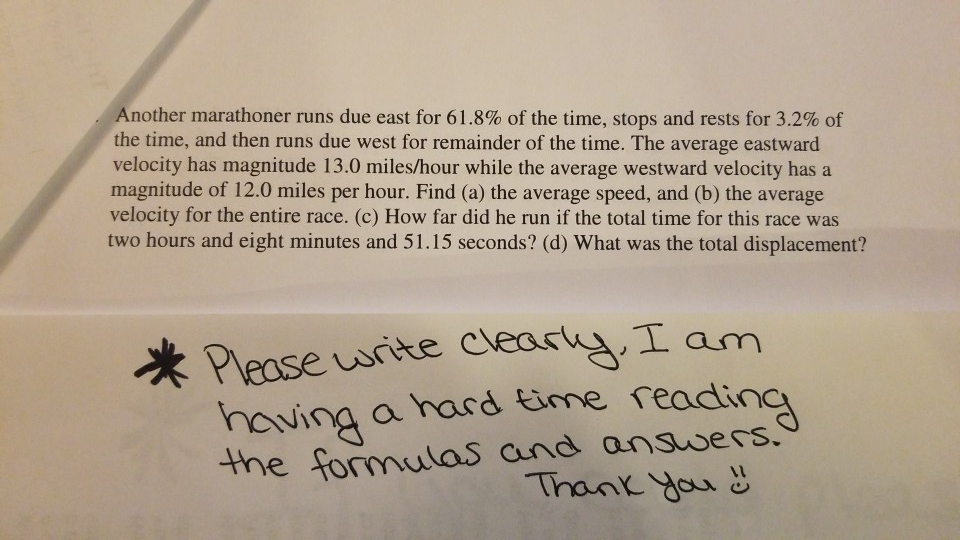 Another marathoner runs due east for 61.8% of the time, stops and rests for 3.2% of
the time, and then runs due west for remainder of the time. The average eastward
velocity has magnitude 13.0 miles/hour while the average westward velocity has a
magnitude of 12.0 miles per hour. Find (a) the average speed, and (b) the average
velocity for the entire race. (c) How far did he run if the total time for this race was
two hours and eight minutes and 51.15 seconds? (d) What was the total displacement?
* Please write clearly, I am
having a hard time reading
the formulas and answers.
Thank you :)